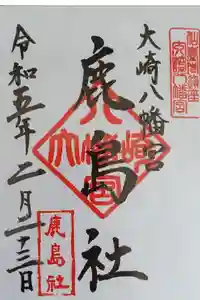 大崎八幡宮
鹿島社
令和五年二月二十三日
大崎八幡宮
鹿島社